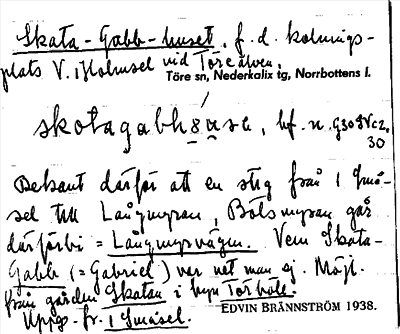 Skata-Gabb-huset, f.d. kolnings-
plats V. i Holmsel vid Töreälven.
Töre sn, Nederkalix tg, Norrbottens l.
skatagabhusə, bf. n.
30
Bekant därför att en stig från 1 Småsel
sel till Långmyran, Bölsmyran går
därförbi = Långmyrvägen. Vem Skata-
Gabb (= Gabriel) var vet man ej. Möjl.
från gården Skatan i byn Törböle.
Uppg. fr. 1 Småsel.
EDVIN BRÄNNSTRÖM 1938.